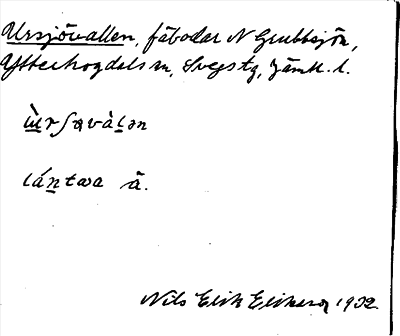 Ursjövallen, fäbodar N Grubbsjön,
Ytterhogdals sn, Svegs tg, Jämtl. l.
ù̱rʃɷvàḻən
láṉtwa ā.
Nils Erik Erikson 1932